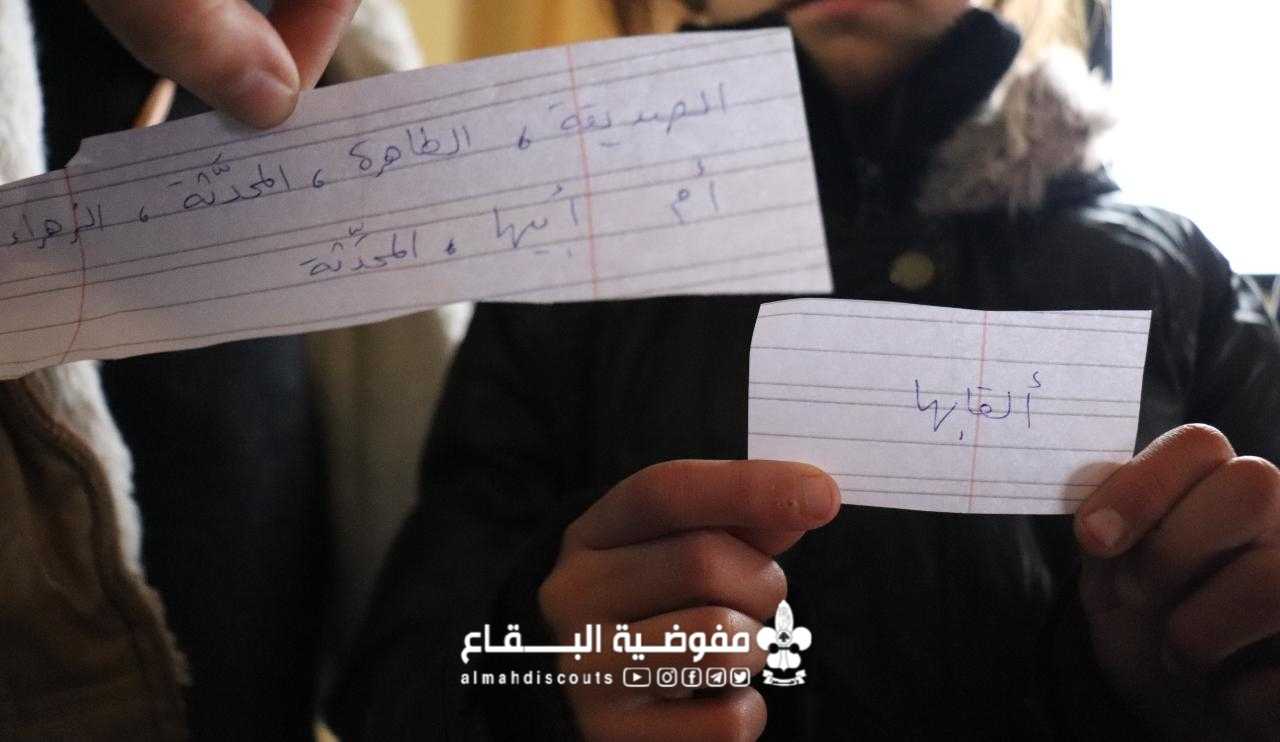 الصديقة، الطاهرة، المحدّثة، الزهراء
أم أبيها، المحدّثة
ألقابها
مفوضية البقاع
almahdiscouts